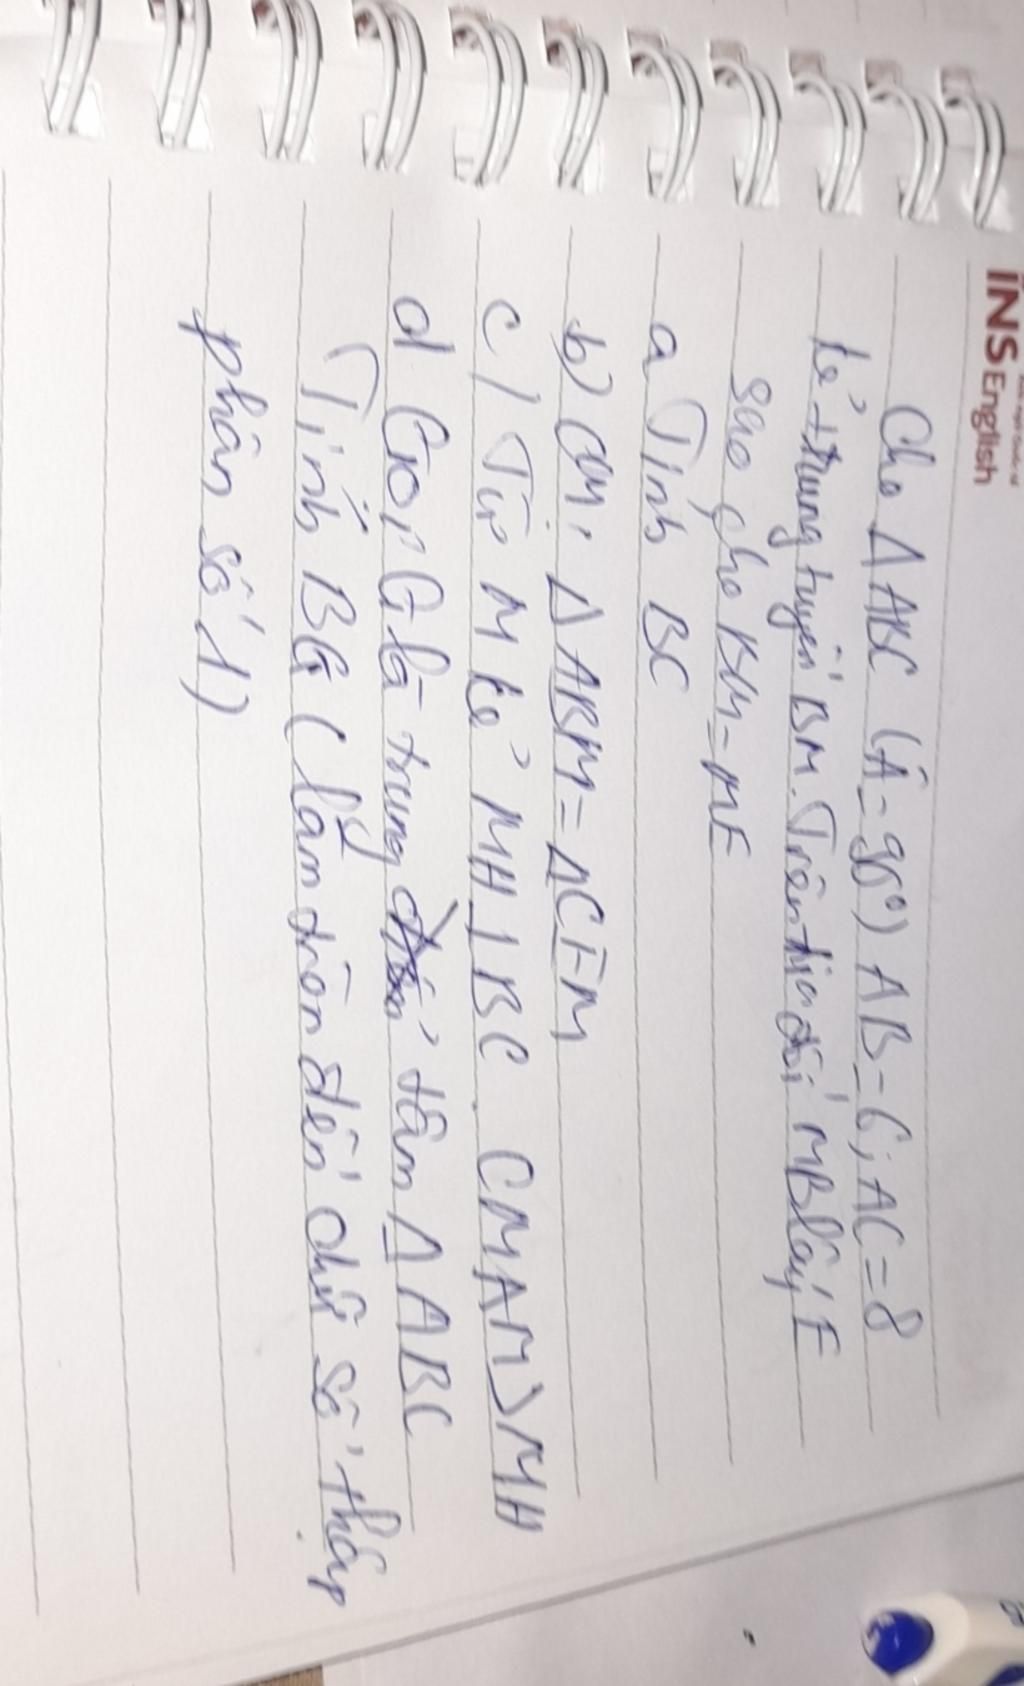 INS English
Cho Δ ABC (Â = 90°) AB = 6; AC = 8
kẻ trung tuyến BM. Trên tia đối MB lấy E
sao cho BM = ME
a Tính BC
b) CM: Δ ABM = Δ CEM
c) Từ M kẻ MH ⊥ BC. CM AM > MH
d) Gọi G là trung tâm Δ ABC
Tính BG (làm tròn đến chữ số thập
phân số 1)